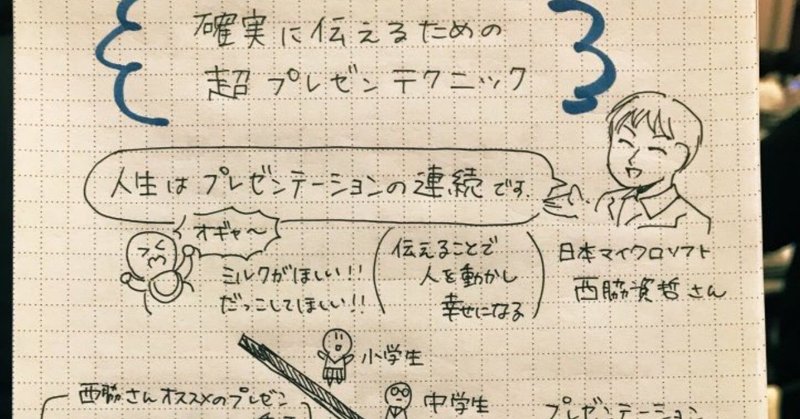 確実に伝えるための
超プレゼンテクニック
人生はプレゼンテーションの連続です。
オギャ〜
ミルクがほしい!!
だっこしてほしい!!
伝えることで
人を動かし
幸せになる
日本マイクロソフト
西脇資哲さん
小学生
中学生
西脇さんオススメのプレゼン
プレゼンテーション